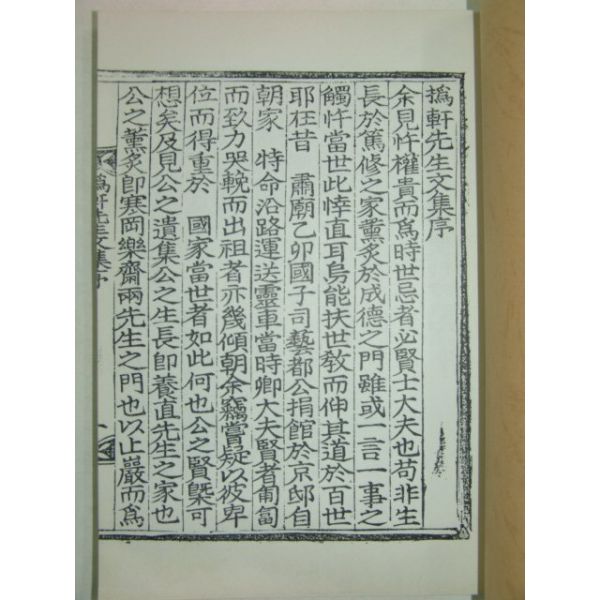 撝軒先生文集序
余見忤權貴而爲時世忌者必賢士大夫也苟非生
長於篤修之家薰炙於成德之門雖或一言一事之
觸忤當世此悻直耳烏能扶世敎而伸其道於百世
耶在昔 肅廟乙卯國子司藝都公捐館於京邸自
朝家 特命沿路運送靈車當時卿大夫賢者匍匐
而致力哭輓而出祖者亦幾傾朝余竊嘗疑以彼卑
位而得重於 國家當世者如此何也公之賢槩可
想矣及見公之遺集公之生長卽養直先生之家也
公之薰炙卽寒岡樂齋兩先生之門也以止嚴而爲
撝軒先生文集序 一